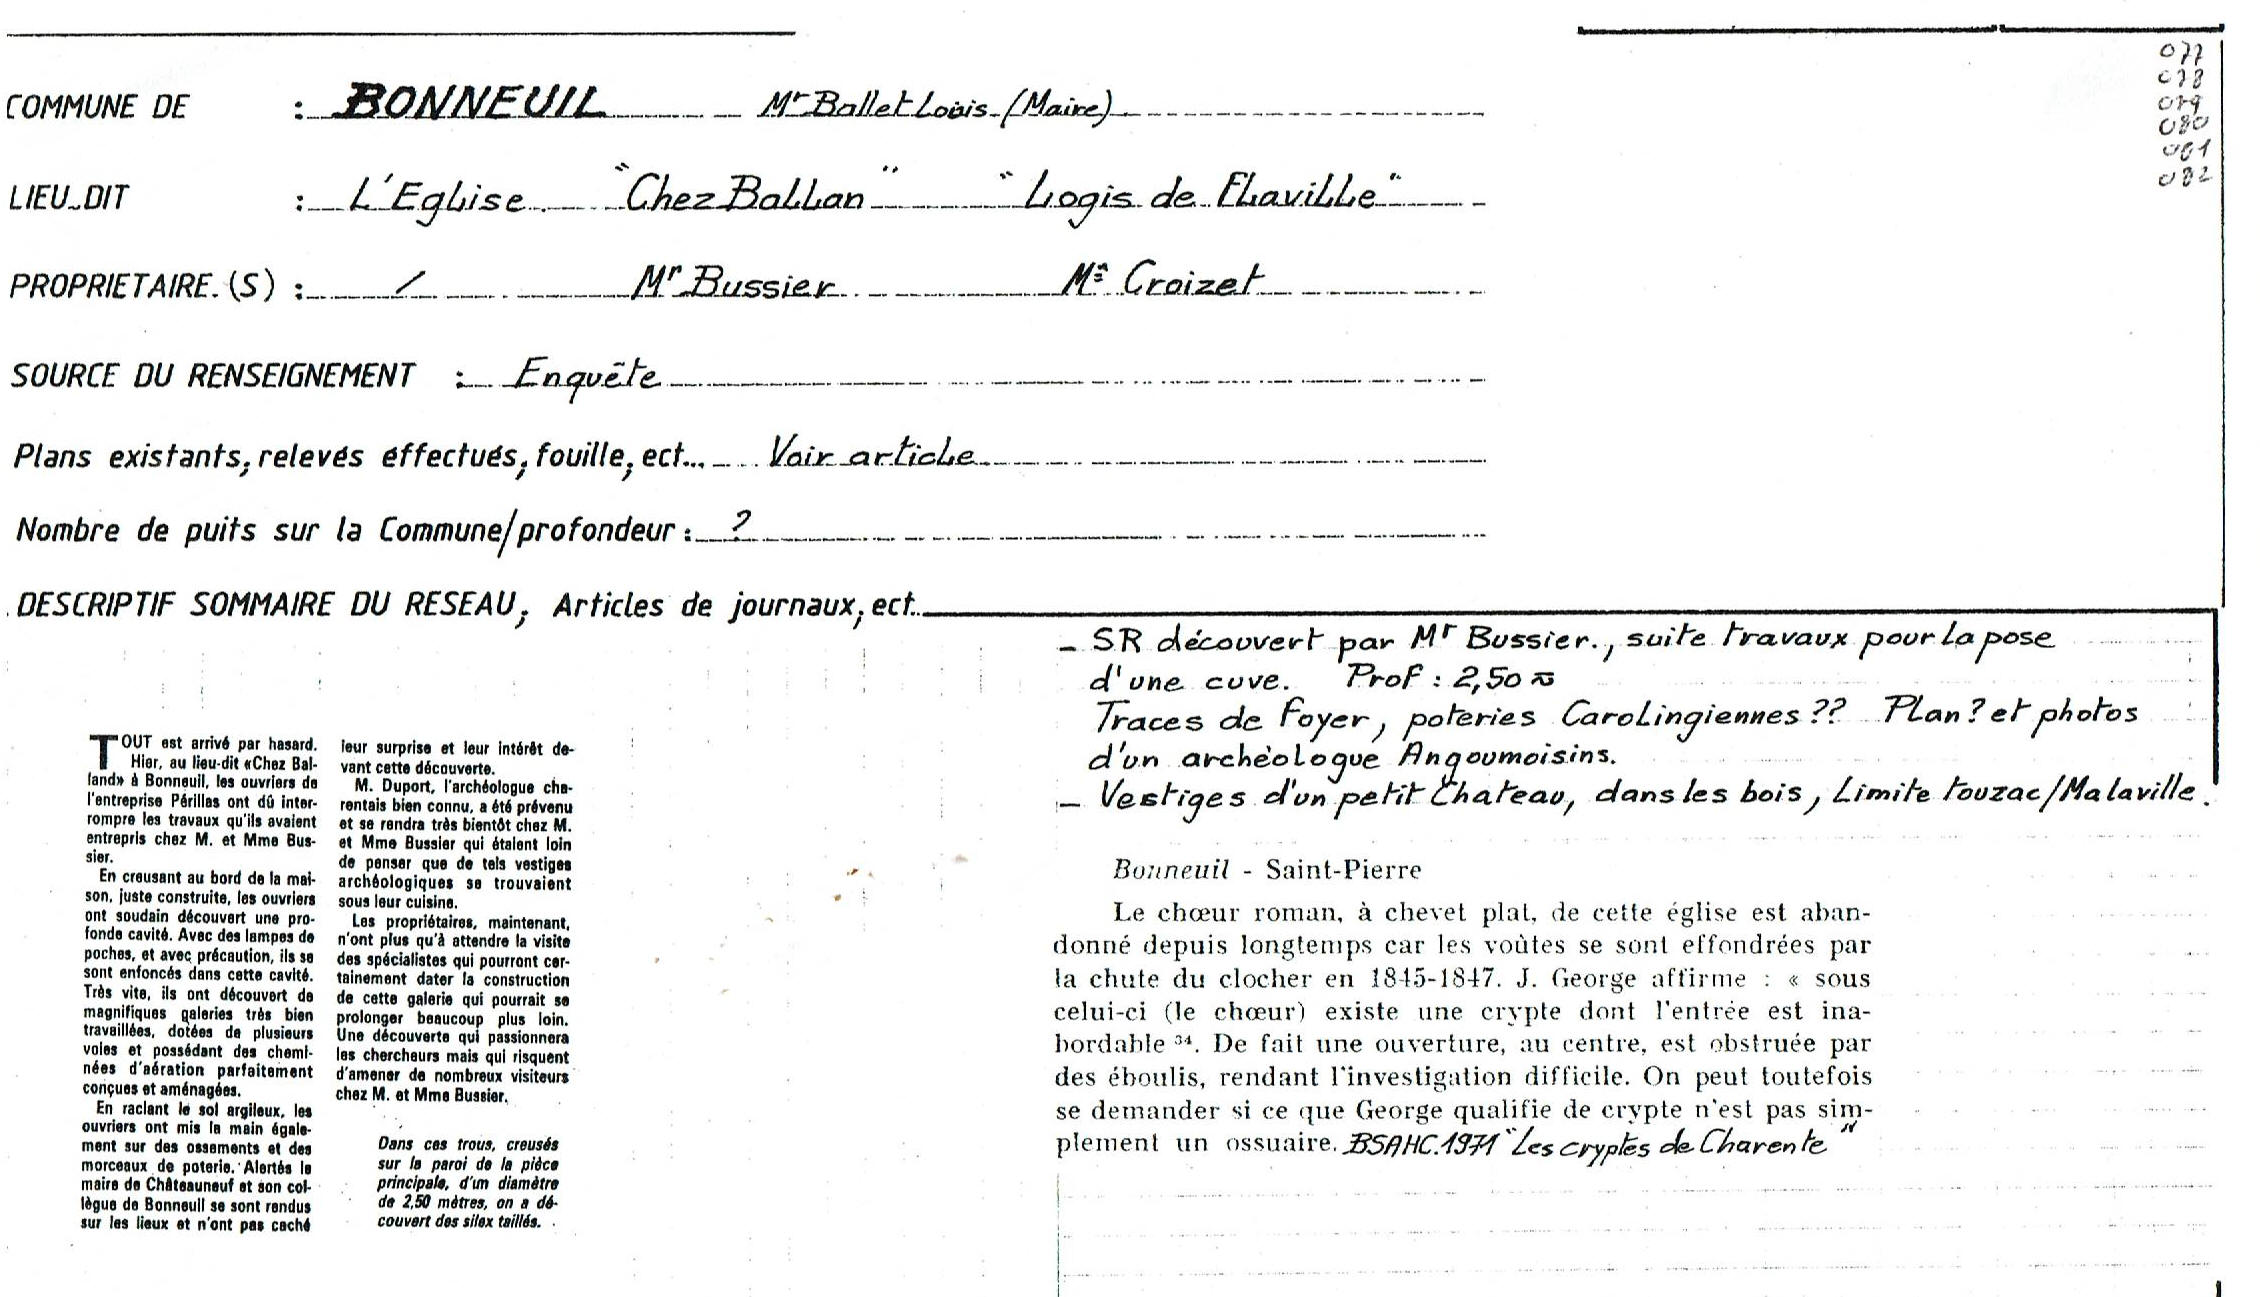 077
078
079
080
081
082
COMMUNE DE : BONNEUIL Mr Ballet Louis (Maire)
LIEU_DIT : L'Eglise "Chez Ballan" "Logis de Flaville"
PROPRIETAIRE.(S) : / Mr Bussier Croizet
SOURCE DU RENSEIGNEMENT : Enquête
Plans existants, relevés éffectués, fouille, ect... Voir article
Nombre de puits sur la Commune/profondeur : ?
DESCRIPTIF SOMMAIRE DU RESEAU, Articles de journaux, ect..
TOUT est arrivé par hasard.
Hier, au lieu-dit «Chez Bal-
land» à Bonneuil, les ouvriers de
l'entreprise Périllas ont dû inter-
rompre les travaux qu'ils avaient
entrepris chez M. et Mme Bus-
sier.
En creusant au bord de la mai-
son, juste construite, les ouvriers
ont soudain découvert une pro-
fonde cavité. Avec des lampes de
poches, et avec précaution, ils se
sont enfoncés dans cette cavité.
Très vite, ils ont découvert de
magnifiques galeries très bien
travaillées, dotées de plusieurs
voies et possédant des chemi-
nées d'aération parfaitement
conçues et aménagées.
En raclant le sol argileux, les
ouvriers ont mis la main égale-
ment sur des ossements et des
morceaux de poterie. Alertés le
maire de Châteauneuf et son col-
lègue de Bonneuil se sont rendus
sur les lieux et n'ont pas caché
leur surprise et leur intérêt de-
vant cette découverte.
M. Duport, l'archéologue cha-
rentais bien connu, a été prévenu
et se rendra très bientôt chez M.
et Mme Bussier qui étaient loin
de penser que de tels vestiges
archéologiques se trouvaient
sous leur cuisine.
Les propriétaires, maintenant,
n'ont plus qu'à attendre la visite
des spécialistes qui pourront cer-
tainement dater la construction
de cette galerie qui pourrait se
prolonger beaucoup plus loin.
Une découverte qui passionnera
les chercheurs mais qui risquent
d'amener de nombreux visiteurs
chez M. et Mme Bussier.
Dans ces trous, creusés
sur la paroi de la pièce
principale, d'un diamètre
de 2,50 mètres, on a dé-
couvert des silex taillés.
- SR découvert par Mr Bussier., suite travaux pour la pose
d'une cuve. Prof : 2,50 m
Traces de foyer, poteries Carolingiennes ?? Plan ? et photos
d'un archèologue Angoumoisins.
- Vestiges d'un petit Chateau, dans les bois, Limite touzac/Malaville.
Bonneuil - Saint-Pierre
Le chœur roman, à chevet plat, de cette église est aban-
donné depuis longtemps car les voûtes se sont effondrées par
la chute du clocher en 1845-1847. J. George affirme : « sous
celui-ci (le chœur) existe une crypte dont l'entrée est ina-
bordable 34. De fait une ouverture, au centre, est obstruée par
des éboulis, rendant l'investigation difficile. On peut toutefois
se demander si ce que George qualifie de crypte n'est pas sim-
plement un ossuaire. BSAHC.1971 "Les cryptes de Charente"